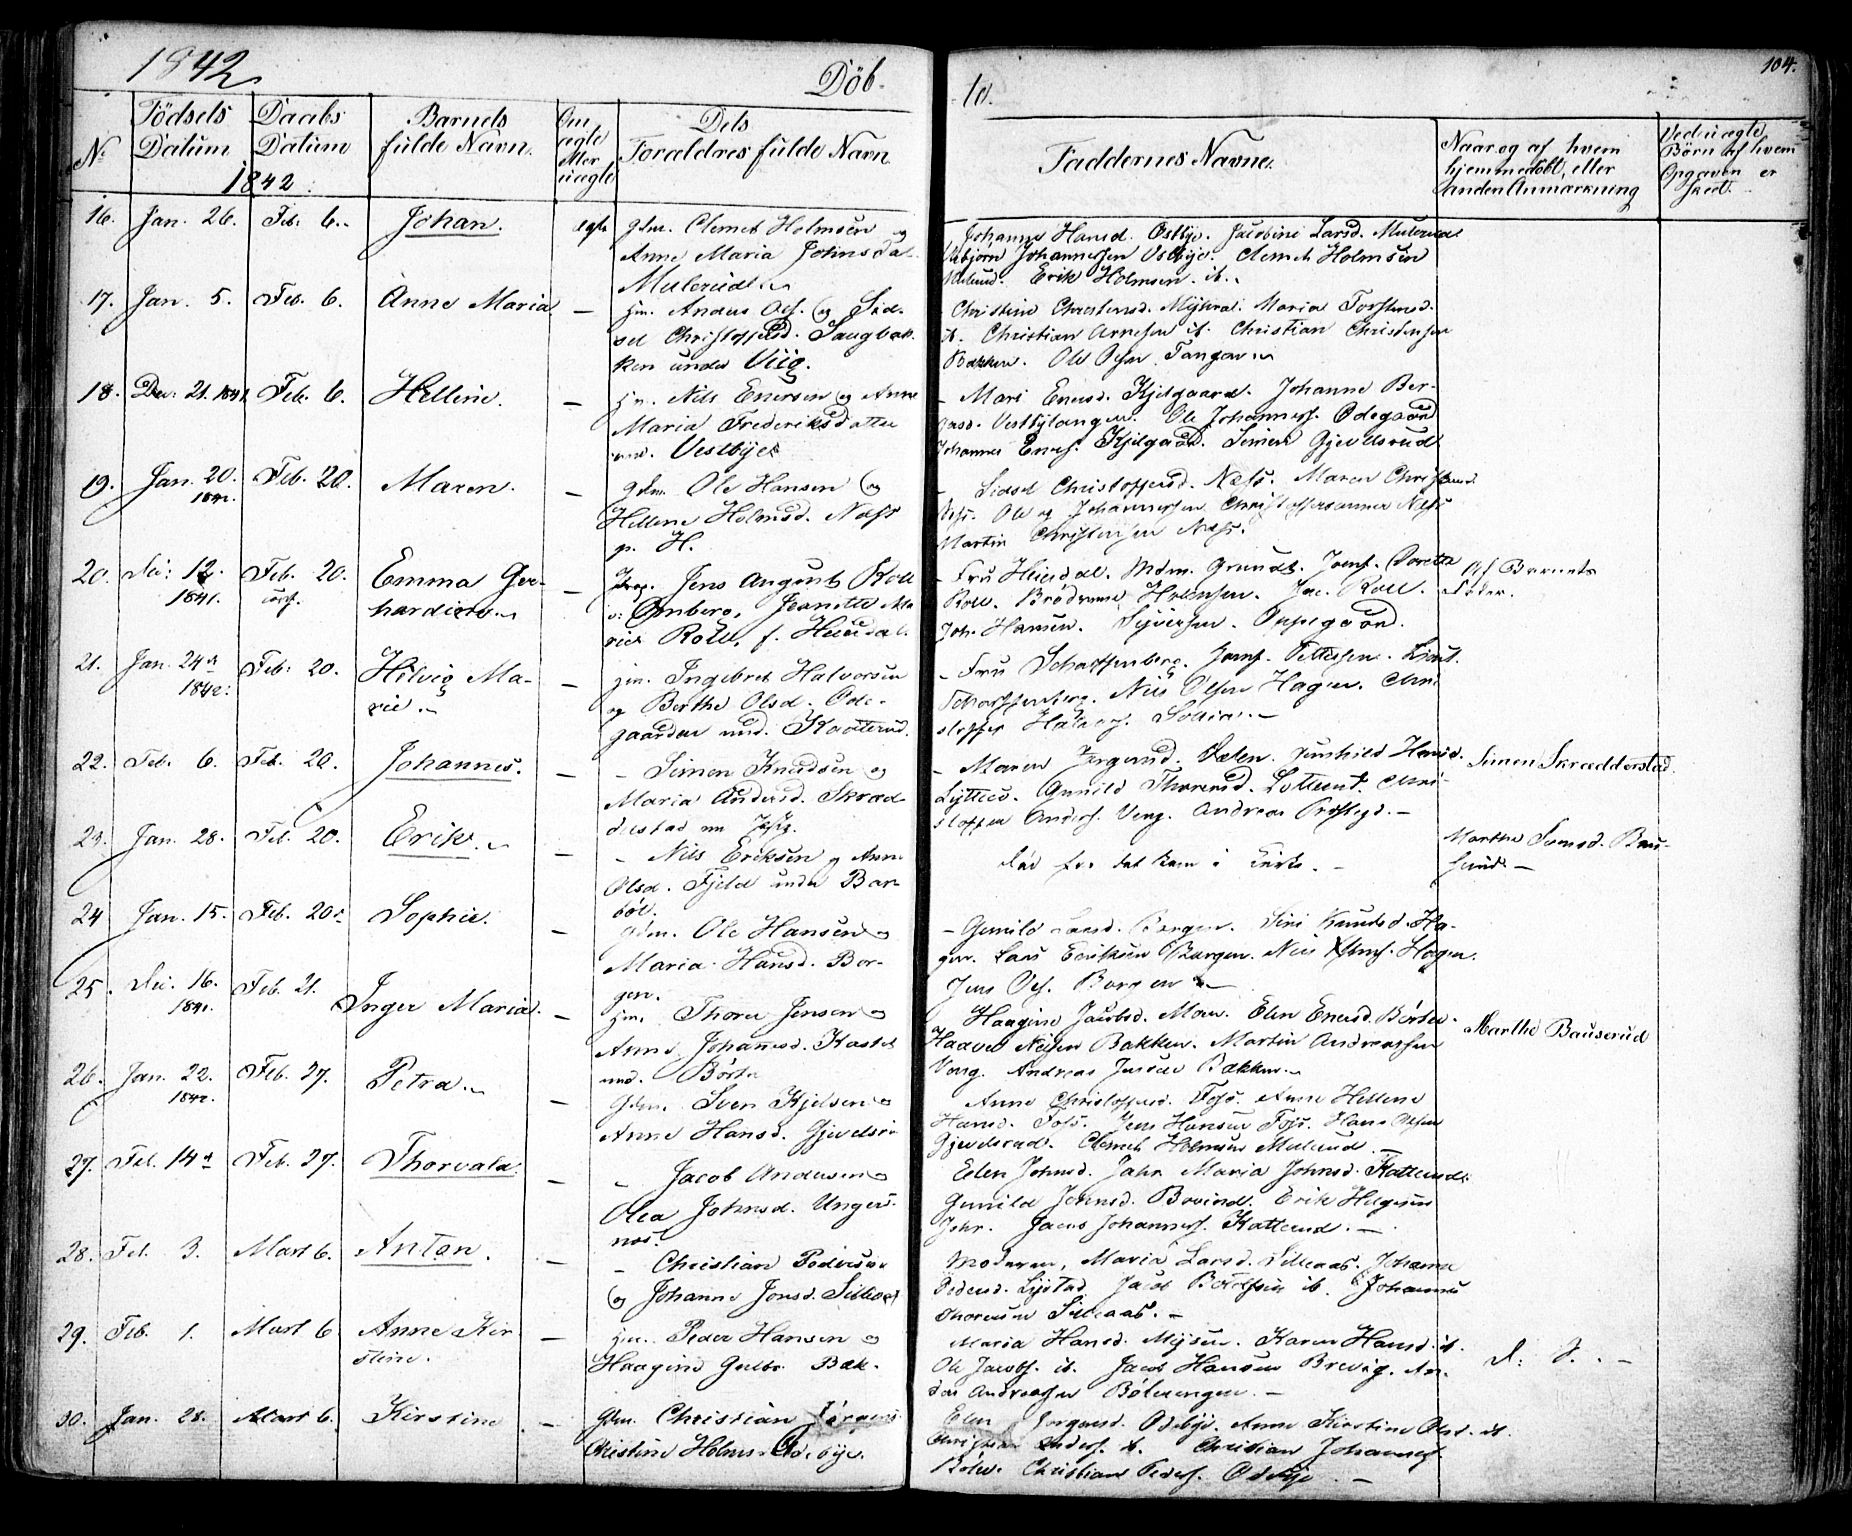 1842
Döb-
te.
104.
No
Födsels Datum
Daabs Datum
1842
Barnets fulde Navn.
Om ægte eller uægte
Dets Forældres fulde Navn
Faddernes Navne.
Naar og af hvem hjemmedöbt, eller anden Anmærkning
Ved uægte Börn af hvem Opgaven er skeet.
16. Jan. 26. Feb. 6. Johan. ægte
Gdm. Clemet Holmsen og
Anne Maria Johnsdat.
Mulerud
Johanne Hansd. Ostbye. Jacobine Larsd. Mulerud
Johannessen Ostbye. Clemet Holmsen
Mulerud. Erik Holmsen ib.
17. Jan. 5. Feb. 6. Anne Maria —
hm. Anders Ols. og Sid-
sel Christoffersd. Saugbak-
ken under Viig.
Christine Christensd. Maria Torstensd.
ib. Christian Arnesen ib. Christian Christensen
Bakken. Ole Olsen Tangen
18. Dec. 21. 1841. Feb. 6. Helline. —
hm. Nils Enersen og Anne
Maria Frederiksdatter
und. Vestbye
— Mari Enersd. Kjelgaard. Johanne Ber-
Vestbytangen. Ole Johanness. Ödegaard
Johannes Eners. Kjelgaard. Simen Gjevelsrud
19. Jan. 20. 1842. Feb. 20. Maren. —
Gdm. Ole Hansen og
Hellene Holmsd. Næss
p. H.
— Sidsel Christoffersd. Næss. Maren Christensd.
Næss. Ole og Johannessen Næss
Martin Christensen Næss.
20. Dec. 12. 1841. Feb. 20. Emma Ger-
hardine. —
Jens August Roll
Omberg, Jeanette Ma-
rie Roll, f. Heierdal.
— Fru Heierdal. Mdm. Grundt. Jomf. Dorette
Roll. Brødrene Holmsen. Jac. Roll.
Joh. Hansen. Syversen. Oppegaard.
Af Barnets
Fader.
21. Jan. 24de 1842. Feb. 20. Helvig Ma-
rie. —
hm. Ingebret Halvorsen
og Berthe Olsd. Öde-
gaarden und. Kaatterud.
— Fru Scharffenberg. Jomf. Pettersen. Lieut.
Scharffenberg. Nils Olsen Hagen. Chri-
stoffer Halvors.
22. Feb. 6. Feb. 20. Johannes. —
— Simen Knudsen og
Maria Andersd. Skræd-
derstad
— Maren Jörgensd. Gunhild Hansd.
Gunild Thoresd. Chri-
stoffer Anders. Veng. Andreas
Simen Skrædderstad.
23. Jan. 28. Feb. 20. Erik. —
— Nils Eriksen og Anne
Olsd. Fjeld under Bar-
böl.
död för det kom i Kirke. —
Marthe Svensd. Bau-
serud. —
24 Jan. 15. Feb. 20. Sophie. —
Gdm. Ole Hansen og
Maria Hansd. Bor-
gen.
— Gunild Larsd. Borgen. Siri Knudsd. Ha-
gen. Lars Eriksen Borgen. Nils Hagen.
Jens Ols. Borgen
25. Dec. 16. 1841. Feb. 21. Inger Maria. —
hm. Thorer Jensen og
Anne Johannesd. Kastet
und. Börte
Haagine Jacobsd. Moen. Elen Enersd. Börte.
Haavel Nilsen Bakken. Martin Andreassen
Veng. Andreas Jensen Bakken.
Marthe Bauserud
26. Jan. 22. 1842. Feb. 27. Petra. —
Gdm. Sven Kjelsen og
Anne Hansd. Gjevelsru
Anne Christoffersd. Foss. Anne Hellene
Hansd. Foss. Jens Hansen Foss. Hans Olsen
Gjevelsrud. Clemet Holmsen Mulerud. —
27. Feb. 14de Feb. 27. Thorvald. —
— Jacob Andersen og
Olea Johnsd. Unger-
næs.
Elen Johnsd. Jahr. Maria Johnsd. Katterud.
Gunild Johnsd. Erik Helgesen
Jahr. Jacob Johanness. Katterud. —
28. Feb. 3. Mart 6. Anton. —
— Christian Pedersen
og Johanne Jonsd. Silleaas
Moderen, Maria Larsd. Silleaas. Johanne
Pedersd. Jacob ib. Johannes
Thoresen Silleaas. —
29. Feb. 1. Mart 6 Anne Kir-
stine. —
hm. Peder Hansen og
Haagine Gulbr. Bak-
Maria Hansd. Mysen. Karen Hansd. ib.
Ole Jacobs. ib. Jacob Hansen Brevig. An-
ders Andreassen Bölerengen. —
D: S. —
30. Jan. 28. Mart 6. Kirstine —
Gdm. Christian Jörgens.
Christine Holms. Odebye.
Elen Jörgensd. Odebye. Anne Kirstine Olsd. ib.
Christian Anders. ib. Christian Johanness.
Böler. Christian Peders. Odebye. —